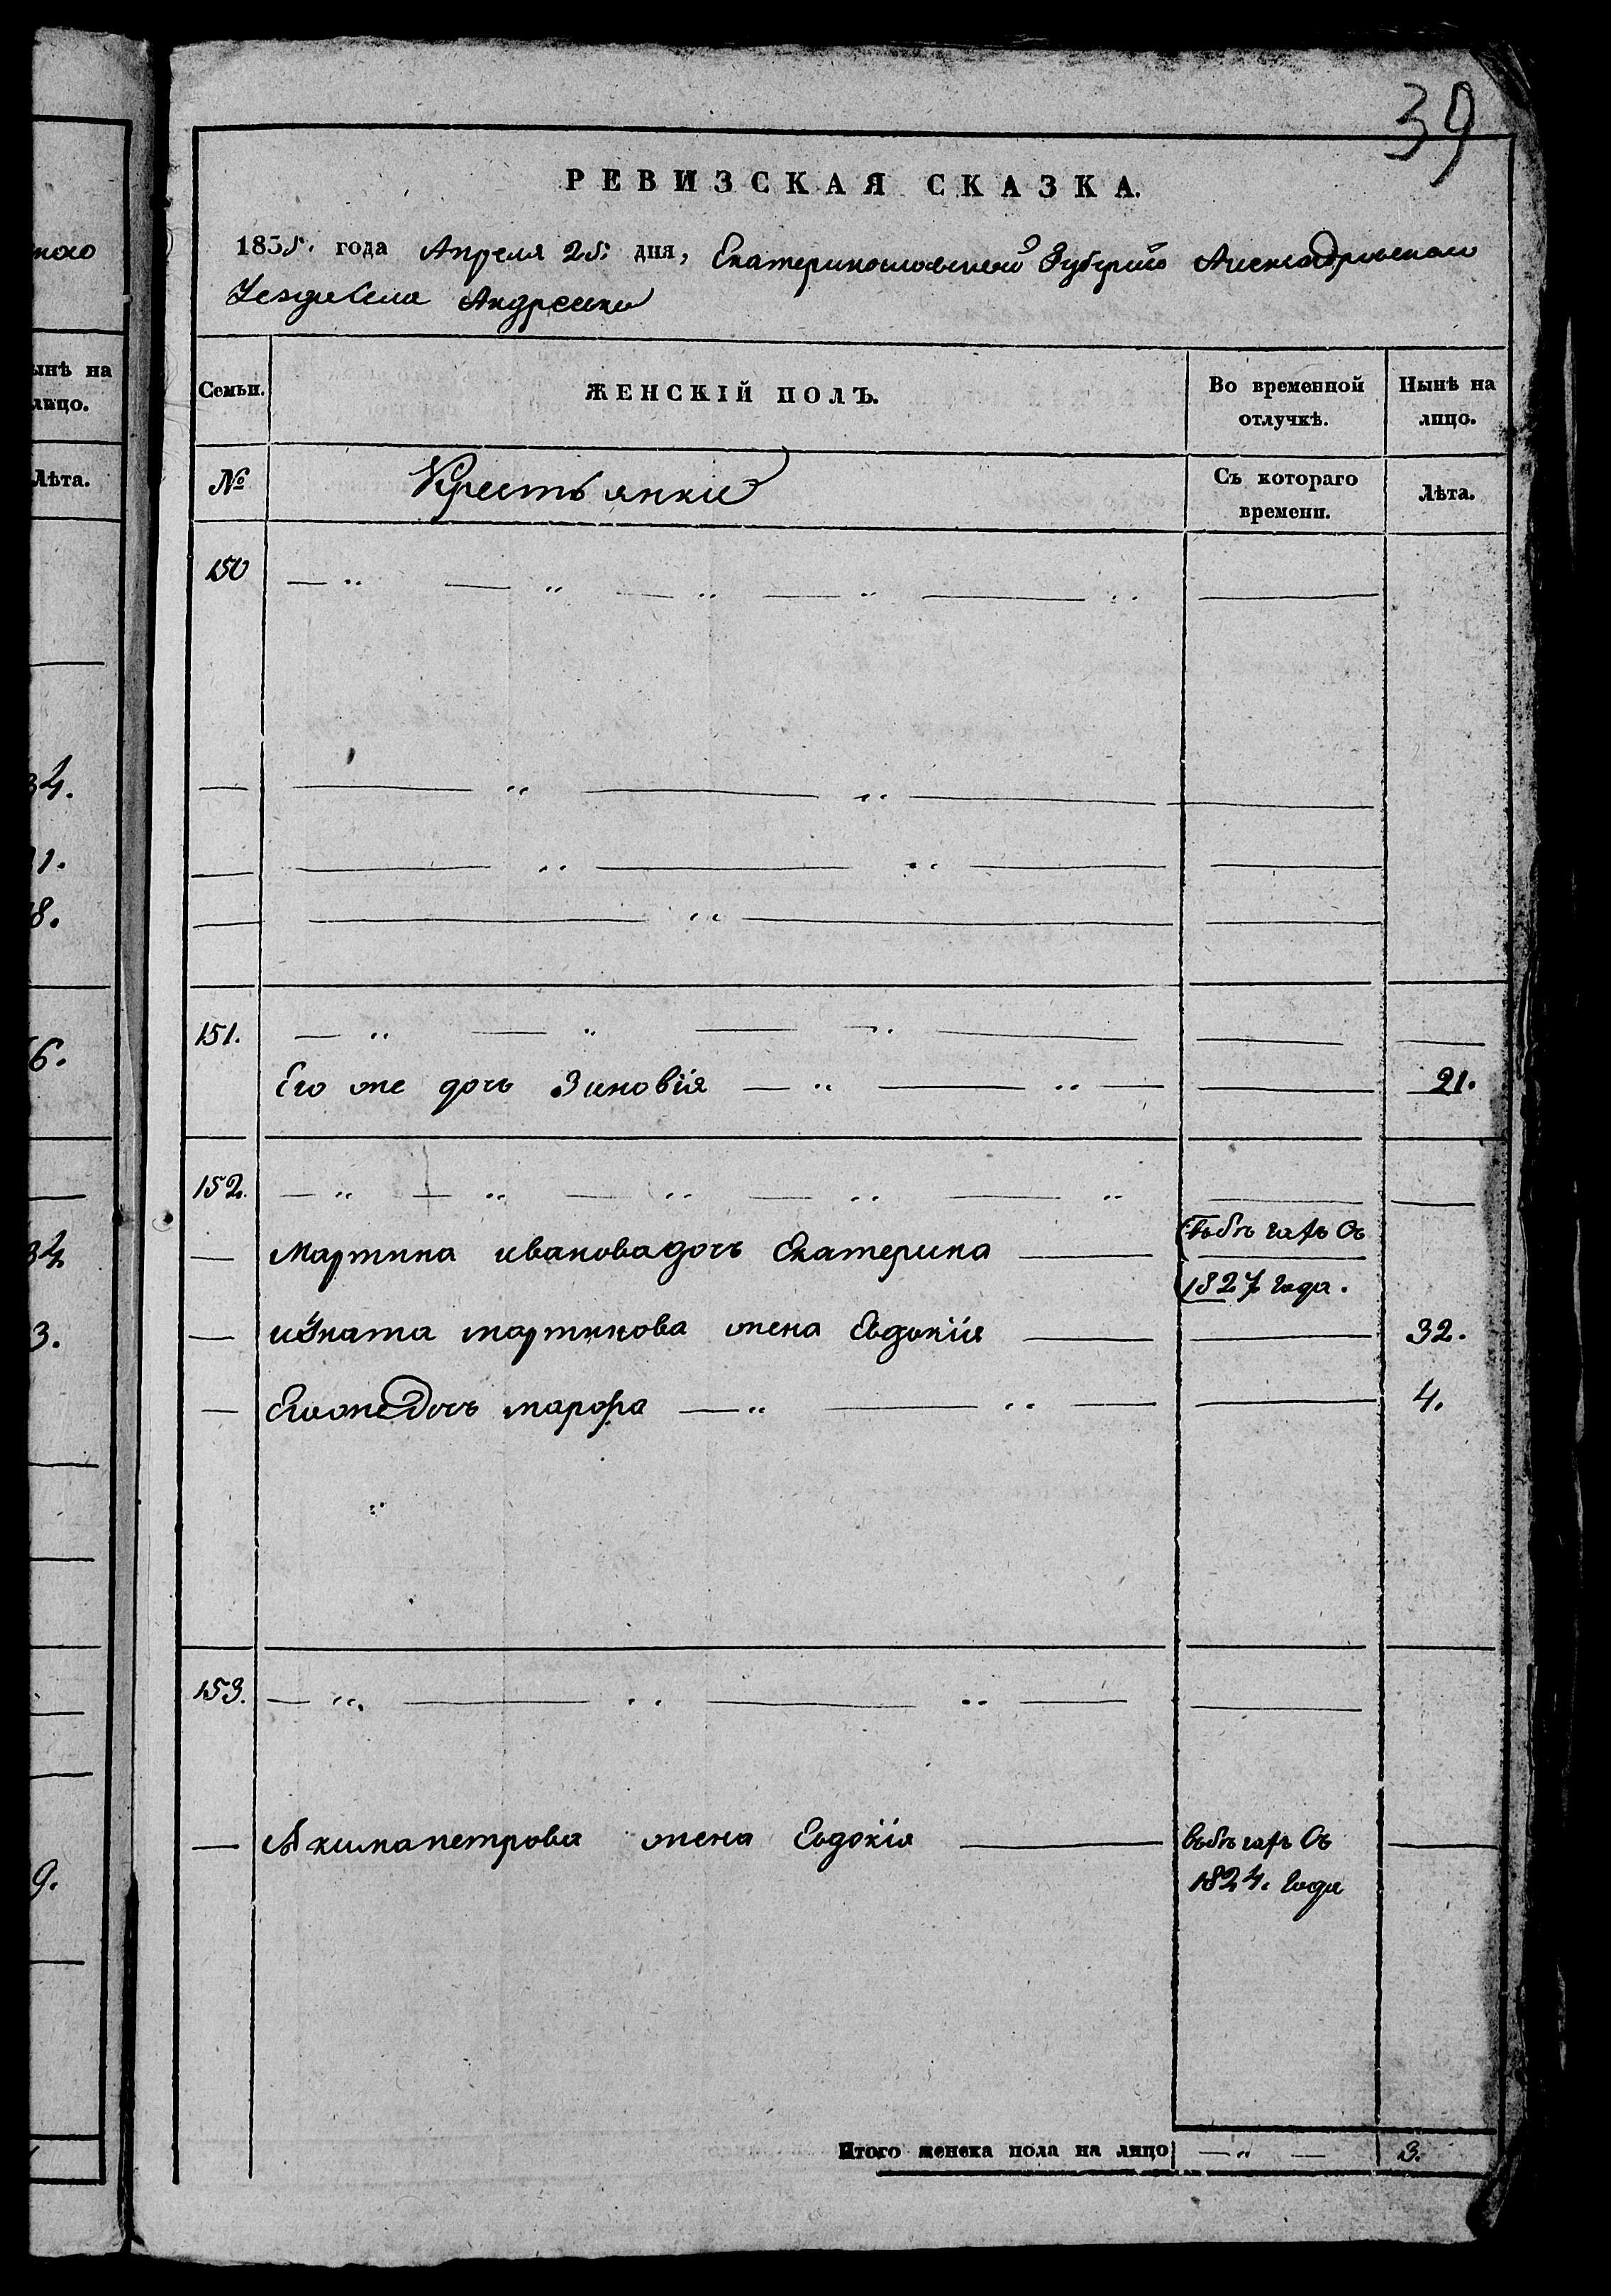 ного
ынѣ на
лицо.
Лѣта.
34.
11.
18.
56.
34
3.
9.
39
РЕВИЗСКАЯ СКАЗКА.
1835. года Апреля 25: дня, Екатеринославской Губернiи Александровскаго
Уезда Села Андреевки
Семьи. ЖЕНСКІЙ ПОЛЪ. Во временной отлучкѣ. Нынѣ на лицо.
№ Крестьянки Съ котораго времени. Лѣта.
150
151.
Его же дочь Зиновія 21.
152.
Мартина иванова дочь Екатерина въбегахъ Съ
1827 года.
игната мартинова жена Евдокія 32.
Егоже дочь марфа 4.
153.
Акима петрова жена Евдокія вьбегахъ Съ
1824. года
Итого женска пола на лицо 3.